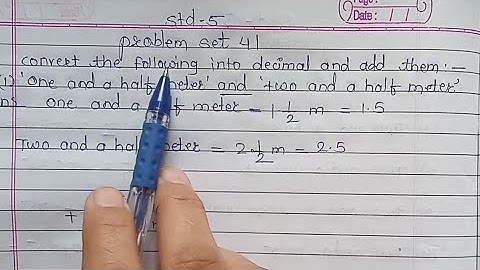 Page:
Date: / /
std-5
problem set 41
convert the following into decimal and add them:-
(1) 'one and a half meter' and 'two and a half meter'
ans one and a half meter - 1 1/2 m = 1.5
Two and a half meter = 2 1/2 m - 2.5
T